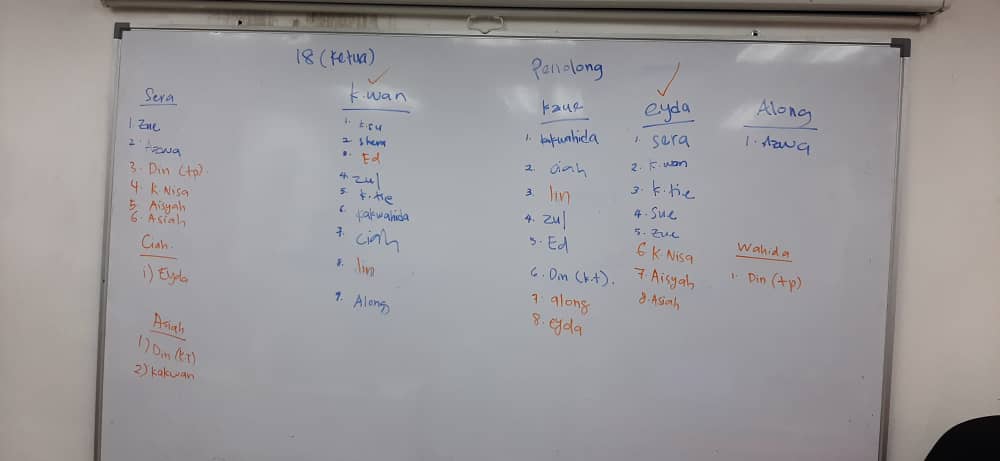 18 (Ketua)
Sera
1. Zue
2. Azwa
3. Din (tp).
4. K Nisa
5. Aisyah
6. Asiah
Ciah.
i) Eyda
Asiah
1) Din (k.t)
2) Kakwan
K.wan
1. K.su
2. Shera
3. Ed
4. Zul
5. K.tie
6. Kakwahida
7. Ciah
8. Iin
9. Along
Penolong
1. kakwahida
2. Ciah
3. Iin
4. Zul
5. Ed
6. Din (k.t).
7. along
8. eyda
eyda
1. sera
2. K.wan
3. K.tie
4. Sue
5. Zue
6 K.Nisa
7. Aisyah
8. Asiah
Along
1. Azwa
Wahida
1. Din (tp)